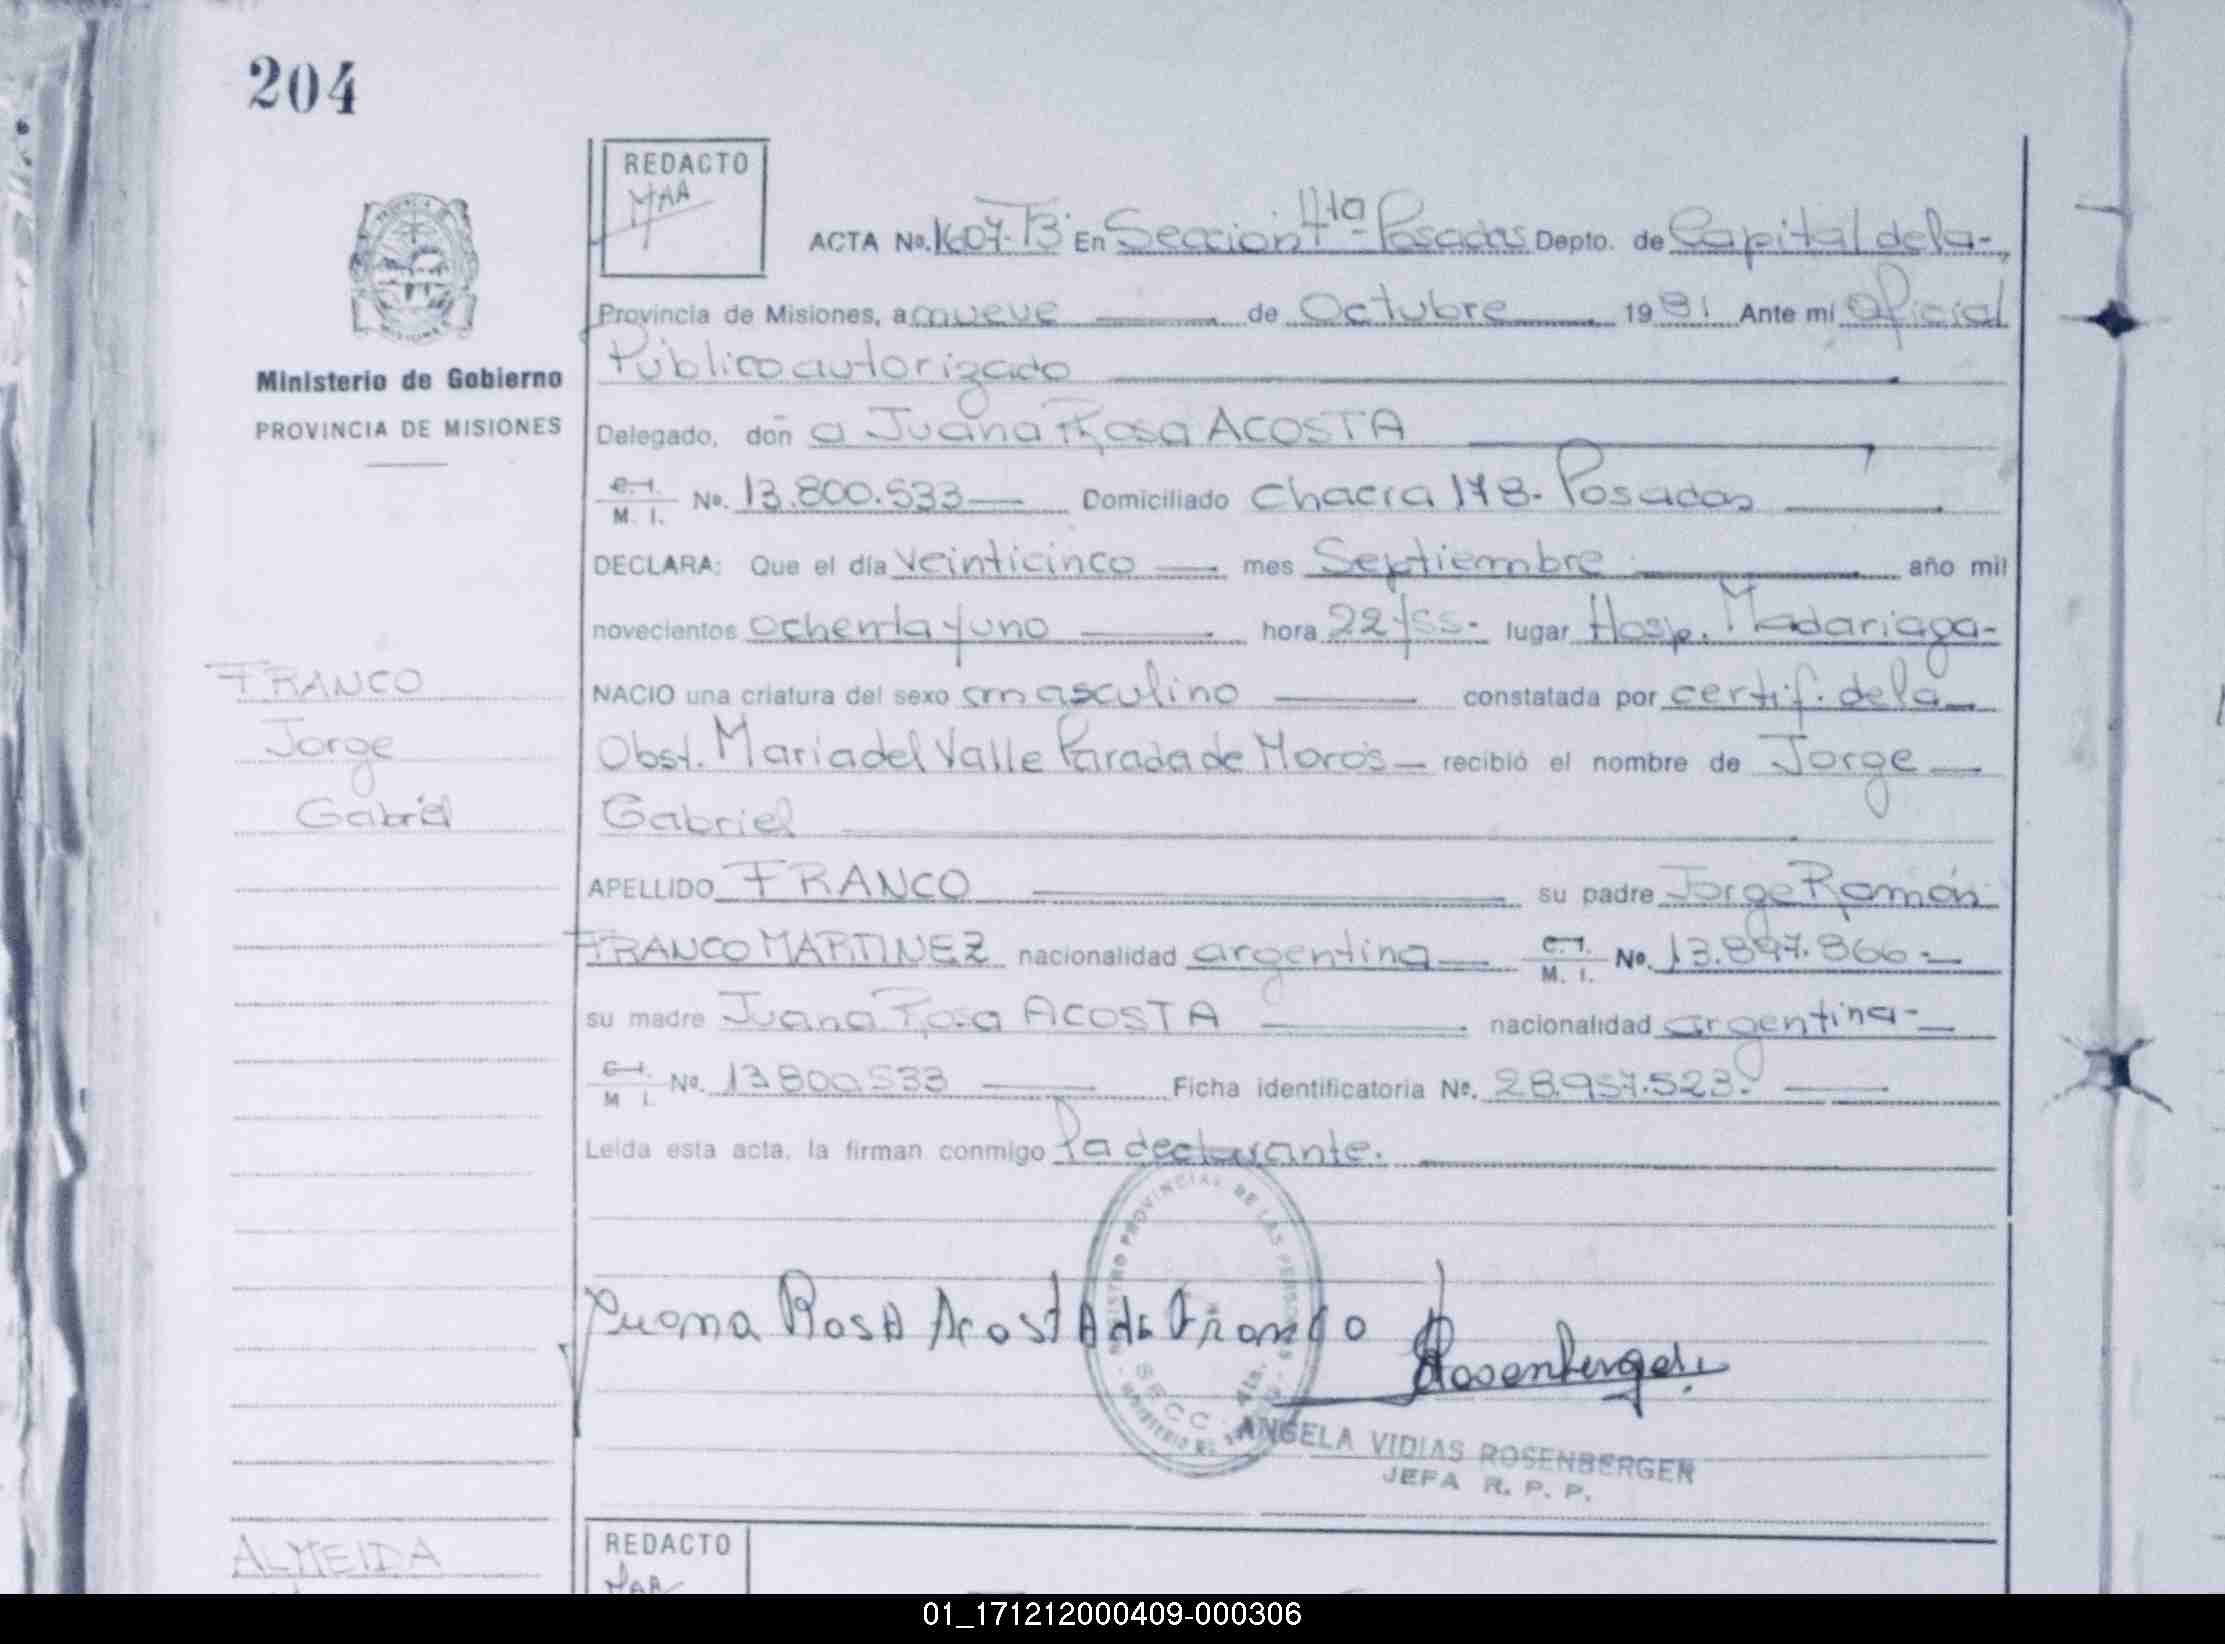 204
REDACTO
MAA
ACTA No. 1607-T3 En Sección 4ta Posadas Depto. de Capital de la-
Provincia de Misiones, a nueve de Octubre 1981 Ante mí Oficial
Público autorizado
Ministerio de Gobierno
PROVINCIA DE MISIONES
Delegado, don a Juana Rosa ACOSTA
C.I. M. I. No. 13.800.533 Domiciliado Chacra 178. Posadas
DECLARA: Que el día veinticinco mes Septiembre año mil
novecientos ochenta y uno hora 22/55- lugar Hosp. Madariaga-
FRANCO
Jorge
Gabriel
NACIO una criatura del sexo masculino constatada por certif. de la
Obst. María del Valle Parada de Moros recibió el nombre de Jorge
Gabriel
APELLIDO FRANCO su padre Jorge Ramón
FRANCO MARTINEZ nacionalidad argentina C.I. M. I. No. 13.897.866.-
su madre Juana Rosa ACOSTA nacionalidad argentina-
C.I. M I. No. 13.800.533 Ficha identificatoria No. 28.957.523.
Leída esta acta, la firman conmigo la declarante.
REGISTRO PROVINCIAL DE LAS PERSONAS
SECC. 4ta.
Juana Rosa Acosta de Franco
Rosenberger
ANGELA VIDIAS ROSENBERGER
JEFA R. P. P.
ALMEIDA
REDACTO
MAA
01_171212000409-000306